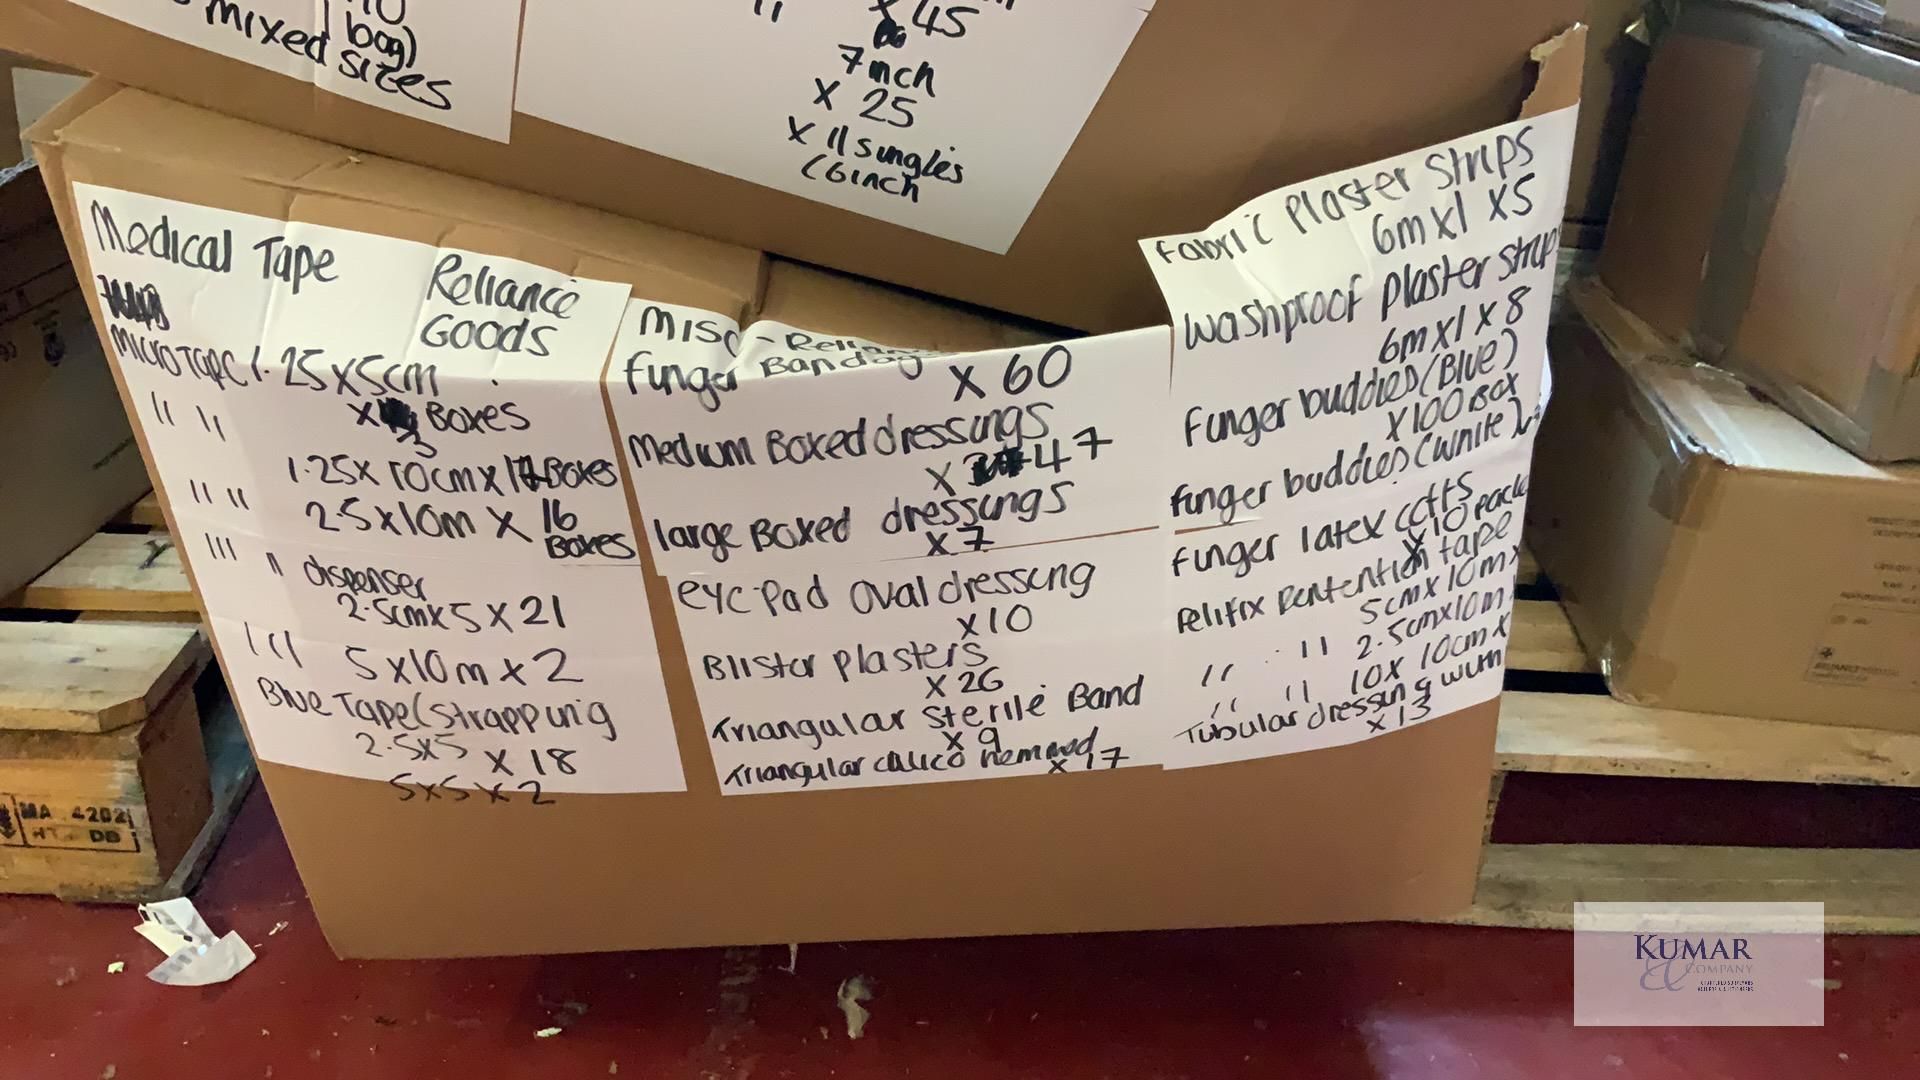 bag)
mixed sizes
" x 45
7 inch
x 25
x 11 singles
(6inch
Medical Tape Reliance
Goods
Microtape 1.25x5cm
x 3 Boxes
" "
1.25x10cm x 17 Boxes
" " 2.5x10m x 16
Boxes
" " dispenser
2.5cmx5 x 21
" " 5x10m x 2
Blue Tape (strapping
2.5x5 x 18
5x5x2
Misc -
Finger Bandag
x 60
Medium Boxed dressings
x 47
large Boxed dressings
x 7
eye Pad Oval dressing
x10
Blister plasters
x 26
Triangular sterile Band
x 9
Triangular calico hemmed
x 17
Fabric Plaster Strips
6m x1 x5
Washproof plaster strips
6m x1 x 8
Finger buddies (Blue)
x100 Box
finger buddies (white)
Finger latex cotts
x 10 pack
Relifix Rentention tape
5cm x 10m x
" " 2.5cm x10m
" " 10x 10cm x
Tubular dressing with
x 13
MA 4202
HT DB
KUMAR
& COMPANY
CHARTERED SURVEYORS